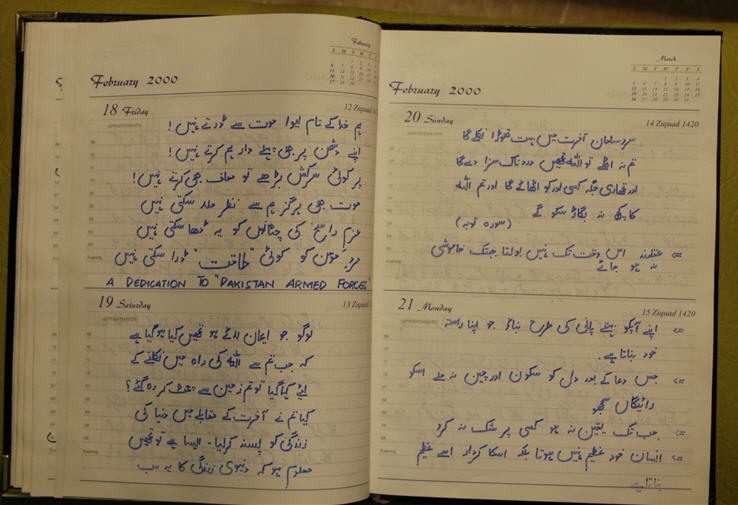 February
February 2000
18 Friday
12 Ziquad
ہم خدا کے نام لیوا موت سے ڈرتے نہیں!
اپنے دشمن پر بھی پہلے وار ہم کرتے نہیں!
پر کوئی سرکش بڑھے تو معاف بھی کرتے نہیں!
موت بھی ہرگز ہم سے نظر ملا سکتی نہیں
عزم راسخ کی چٹانوں کو یہ ڈھا سکتی نہیں
کو کوئی "طاقت" ڈرا سکتی نہیں
A DEDICATION TO "PAKISTAN ARMED FORCES"
19 Saturday
13 Ziquad
لوگو جو ایمان لائے ہو تمھیں کیا ہو گیا ہے
کہ جب تم سے اللہ کی راہ میں نکلنے کے
لئے کہا گیا تو تم زمین سے چمٹ کر رہ گئے؟
کیا تم نے آخرت کے مقابلے میں دنیا کی
زندگی کو پسند کرلیا۔ ایسا ہے تو تمھیں
معلوم ہو کہ دنیوی زندگی کا یہ سب
March
February 2000
20 Sunday
14 Ziquad 1420
سروسامان آخرت میں بہت تھوڑا نکلے گا
تم نہ اٹھے تو اللہ تمھیں دردناک سزا دے گا
اور تمھاری جگہ کسی اور کو اٹھائے گا اور تم اللہ
کا کچھ نہ بگاڑ سکو گے
(سورہ توبہ)
=> عقلمند اس وقت تک نہیں بولتا جبتک خاموشی
نہ ہو جائے
21 Monday
15 Ziquad 1420
=> اپنے آپکو بہتے پانی کی طرح بناؤ جو اپنا راستہ
خود بناتا ہے.
=> جس دعا کے بعد دل کو سکون اور چین نہ ملے اسکو
رائیگاں سمجھو
=> جب تک یقین نہ ہو کسی پر شک نہ کرو
=> انسان خود عظیم نہیں ہوتا بلکہ اسکا کردار اسے عظیم
بناتا ہے